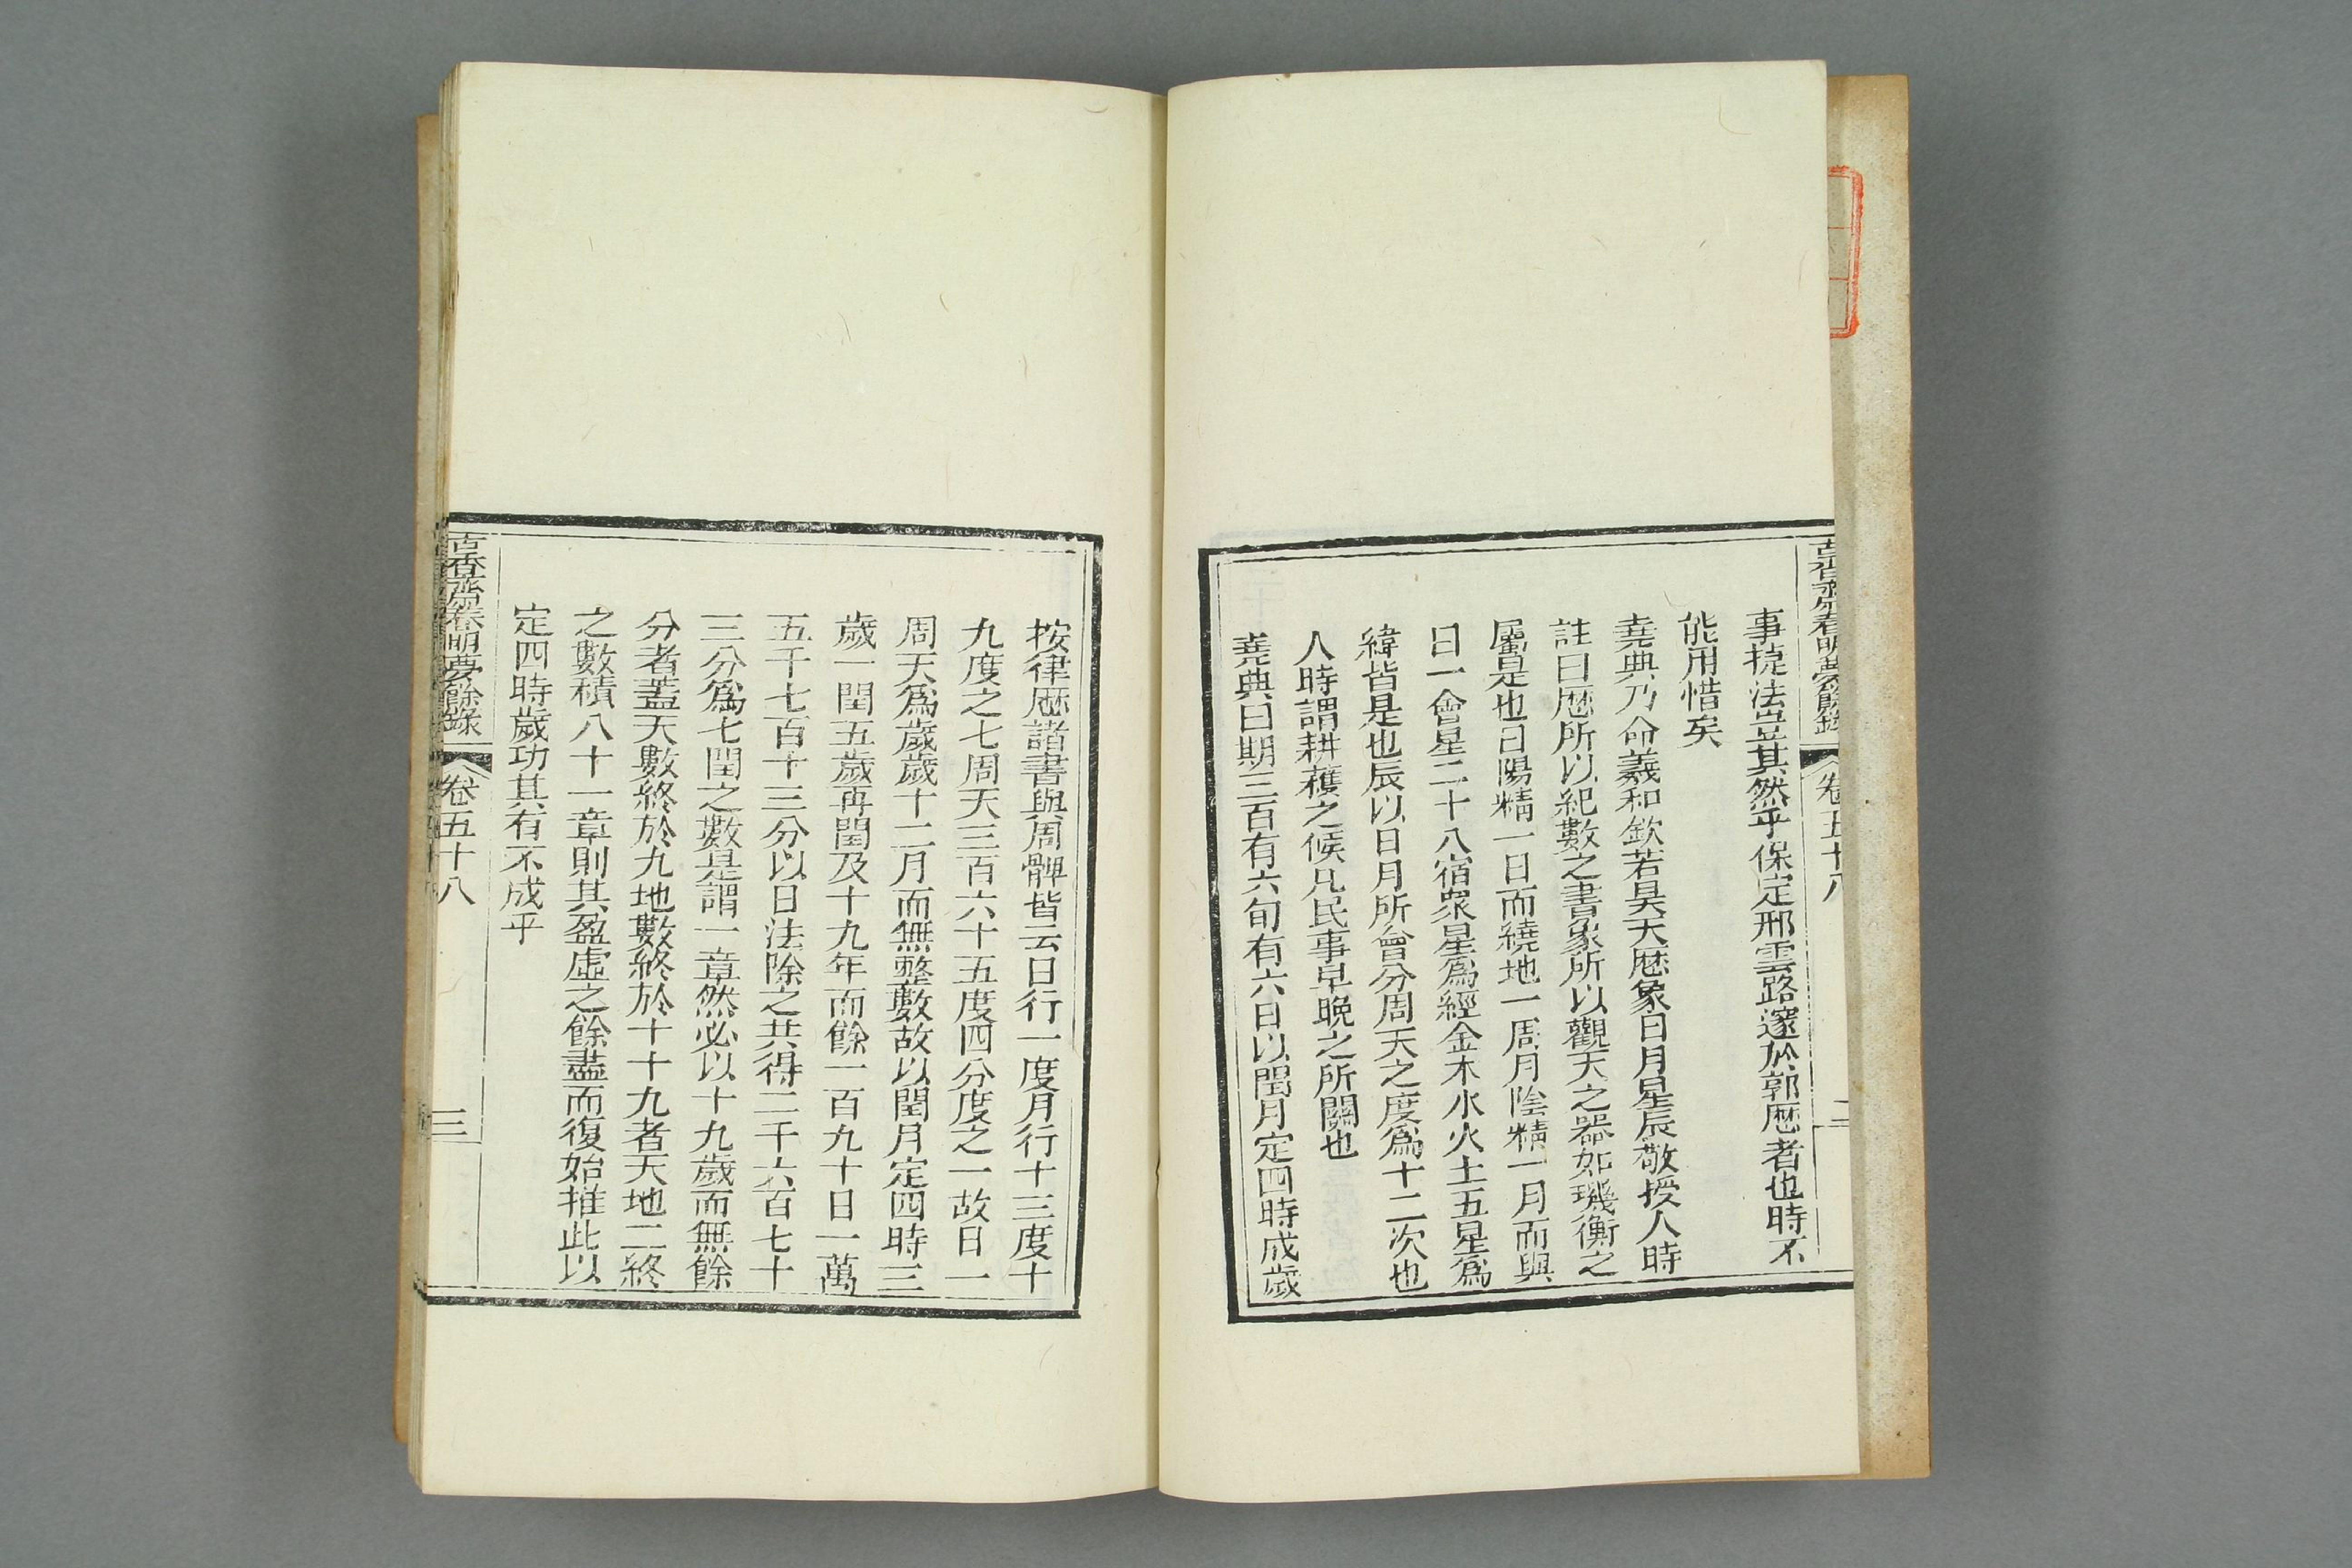 古香齋春明夢餘錄
卷五十八
二
事捷法豈其然乎保定邢雲路邃於郭厯者也時不
能用惜矣
堯典乃命羲和欽若昊天厯象日月星辰敬授人時
註曰厯所以紀數之書象所以觀天之器如璣衡之
屬是也日陽精一日而繞地一周月陰精一月而與
日一會星二十八宿眾星爲經金木水火土五星爲
緯皆是也辰以日月所會分周天之度爲十二次也
人時謂耕穫之候凡民事早晚之所關也
堯典曰期三百有六旬有六日以閏月定四時成歲
按律厯諸書與周髀皆云日行一度月行十三度十
九度之七周天三百六十五度四分度之一故日一
周天爲歲歲十二月而無整數故以閏月定四時三
歲一閏五歲再閏及十九年而餘一百九十日一萬
五千七百十三分以日法除之共得二千六百七十
三分爲七閏之數是謂一章然必以十九歲而無餘
分者蓋天數終於九地數終於十十九者天地二終
之數積八十一章則其盈虛之餘盡而復始推此以
定四時歲功其有不成乎
古香齋春明夢餘錄
卷五十八
三